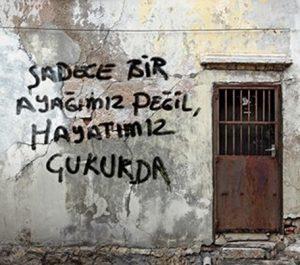 SADECE BİR
AYAĞIMIZ DEĞİL,
HAYATIMIZ
ÇUKURDA